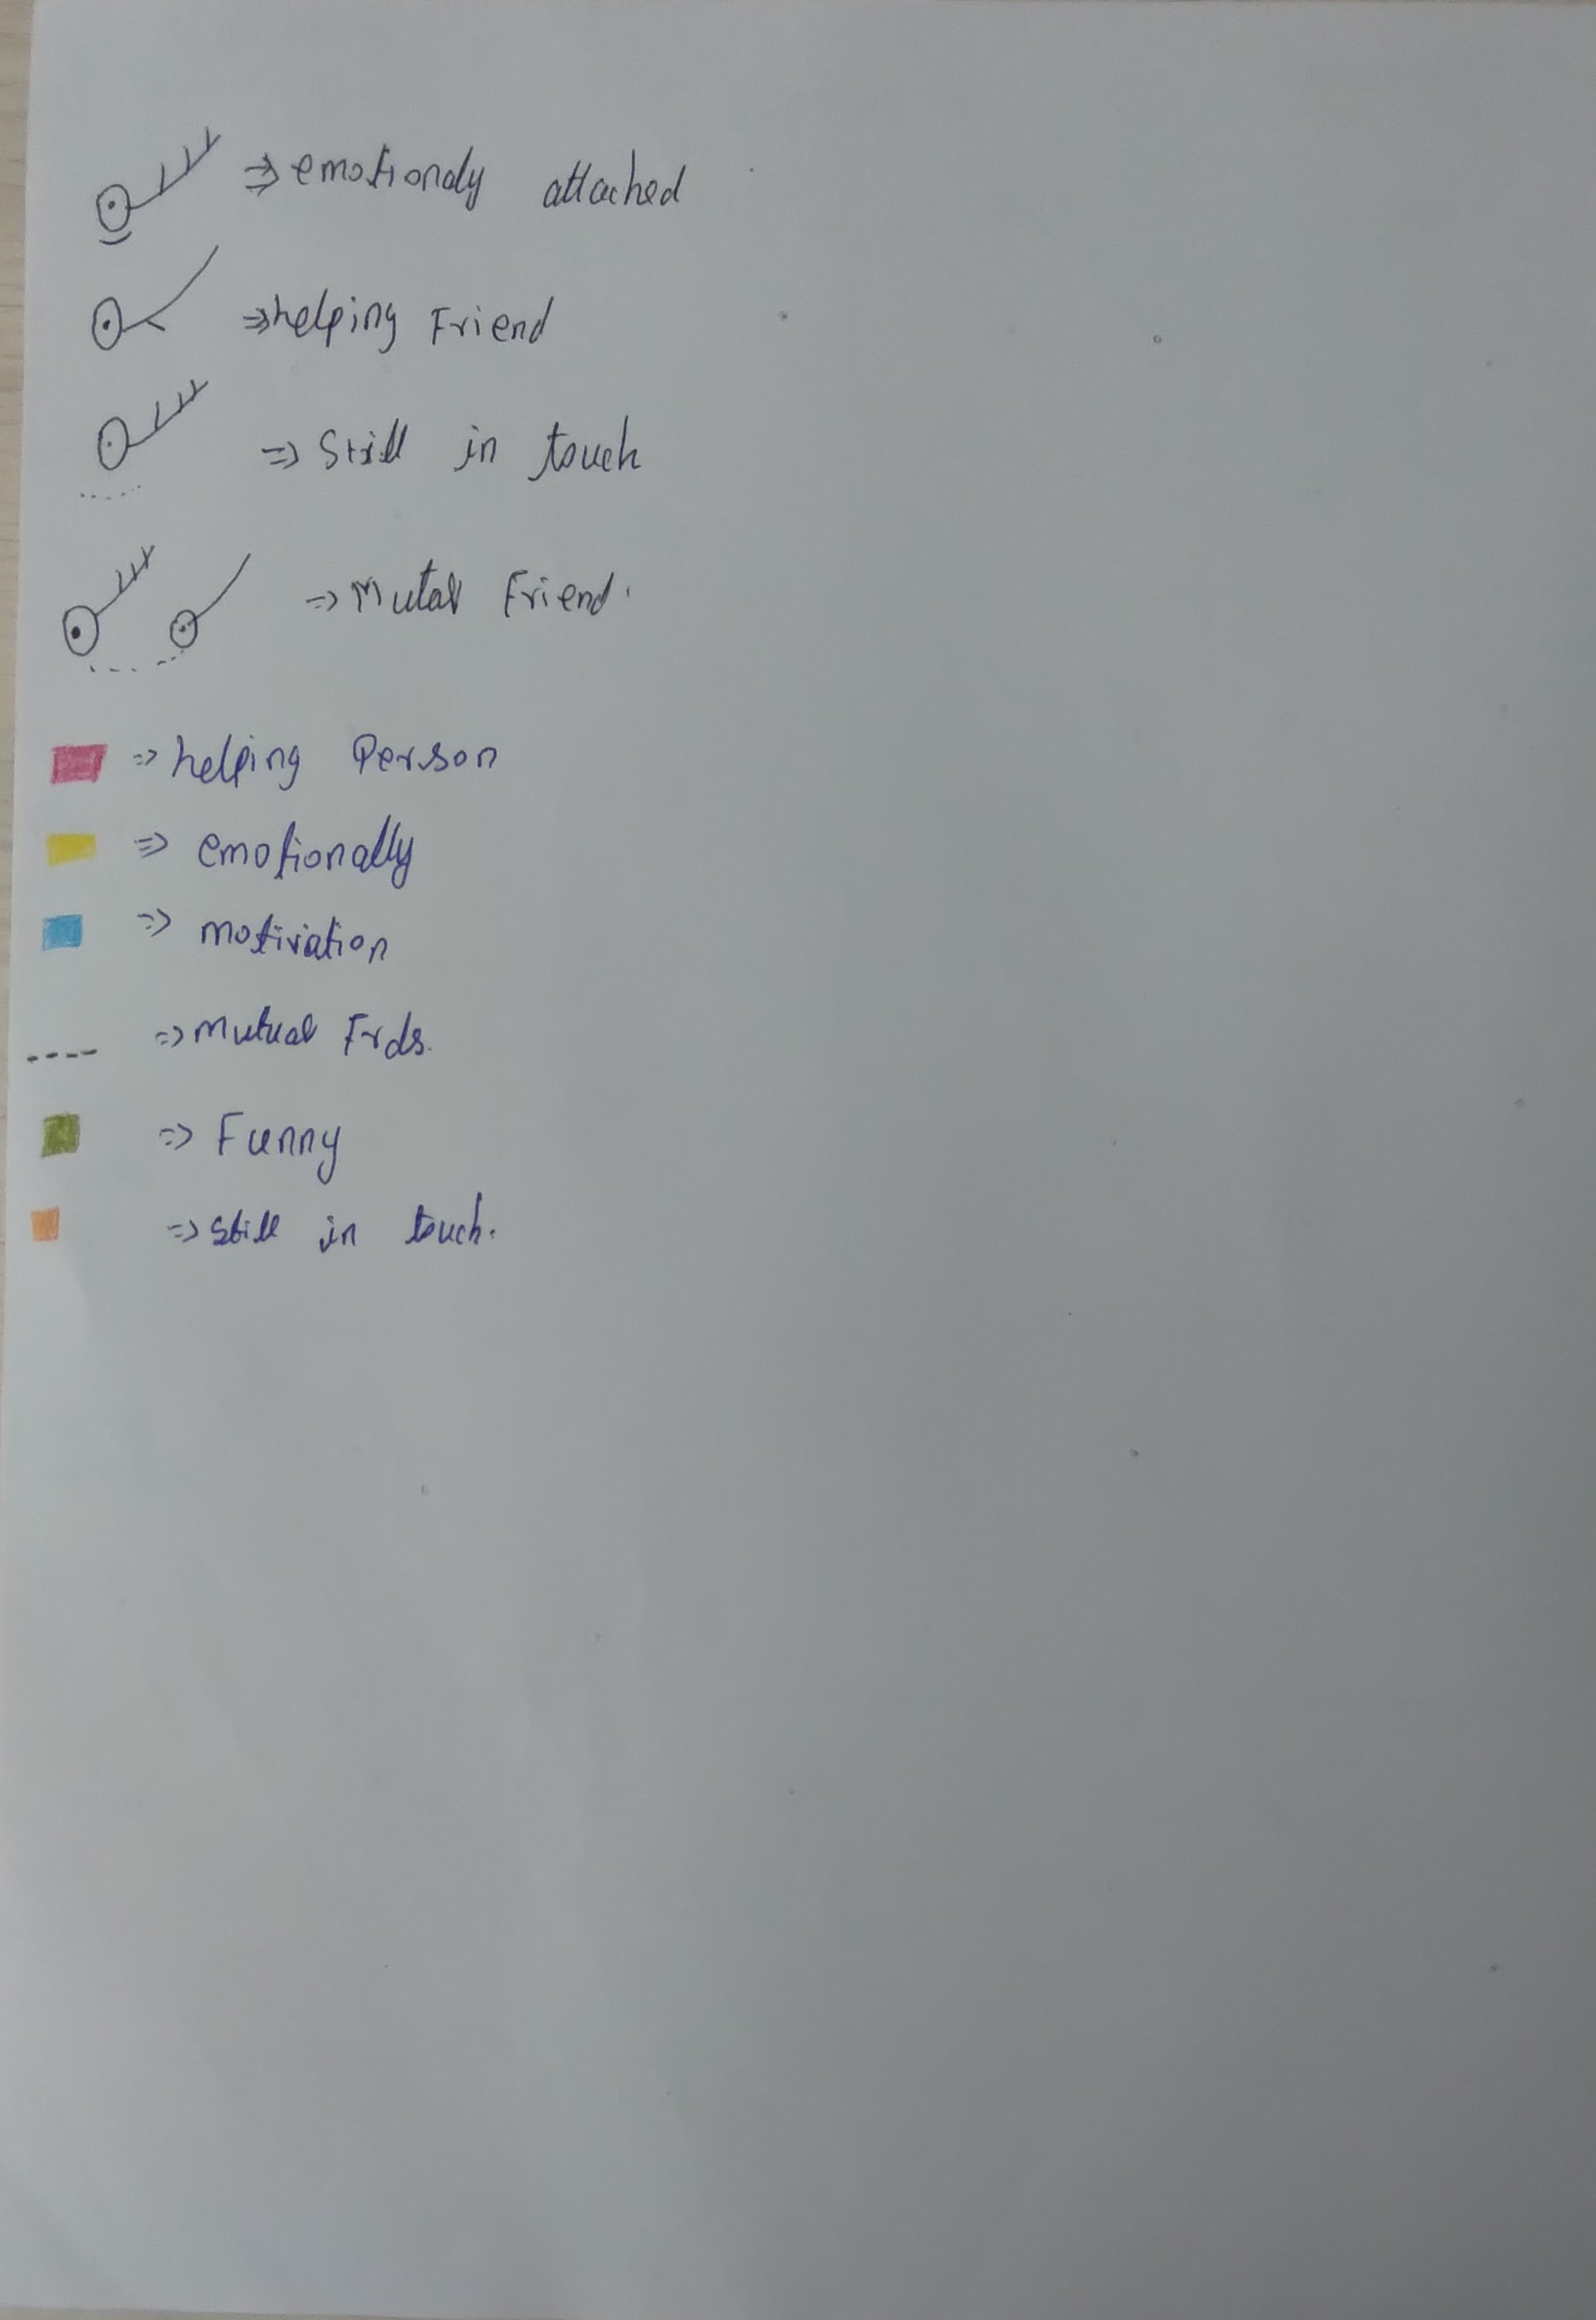 ⇒ emotionaly attached
⇒ helping Friend
⇒ Still in touch
⇒ Mutal Friend.
⇒ helping Person
⇒ emotionally
⇒ motivation
⇒ Mutual Frds.
⇒ Funny
⇒ Still in touch.